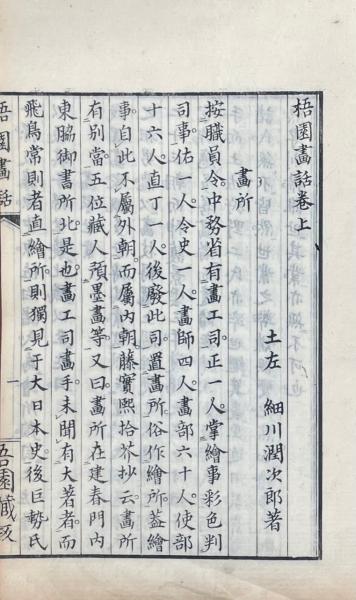 梧園畫話卷上
土左　細川潤次郎著
畫所
按職員令。中務省有畫工司。正一人。掌繪事彩色判
司事。佑一人。令史一人。畫師四人。畫部六十人。使部
十六人。直丁一人。後廢此司。置畫所。俗作繪所。蓋繪
事。自此不屬外朝。而屬內朝。藤實熙拾芥抄云。畫所
有別當。五位藏人。預墨畫等。又曰。畫所在建春門內
東脇御書所北。是也。畫工司畫手。未聞有大著者。而
飛鳥常則者。直繪所。則獨見于大日本史。後巨勢氏
梧園畫話
一
吾園藏版